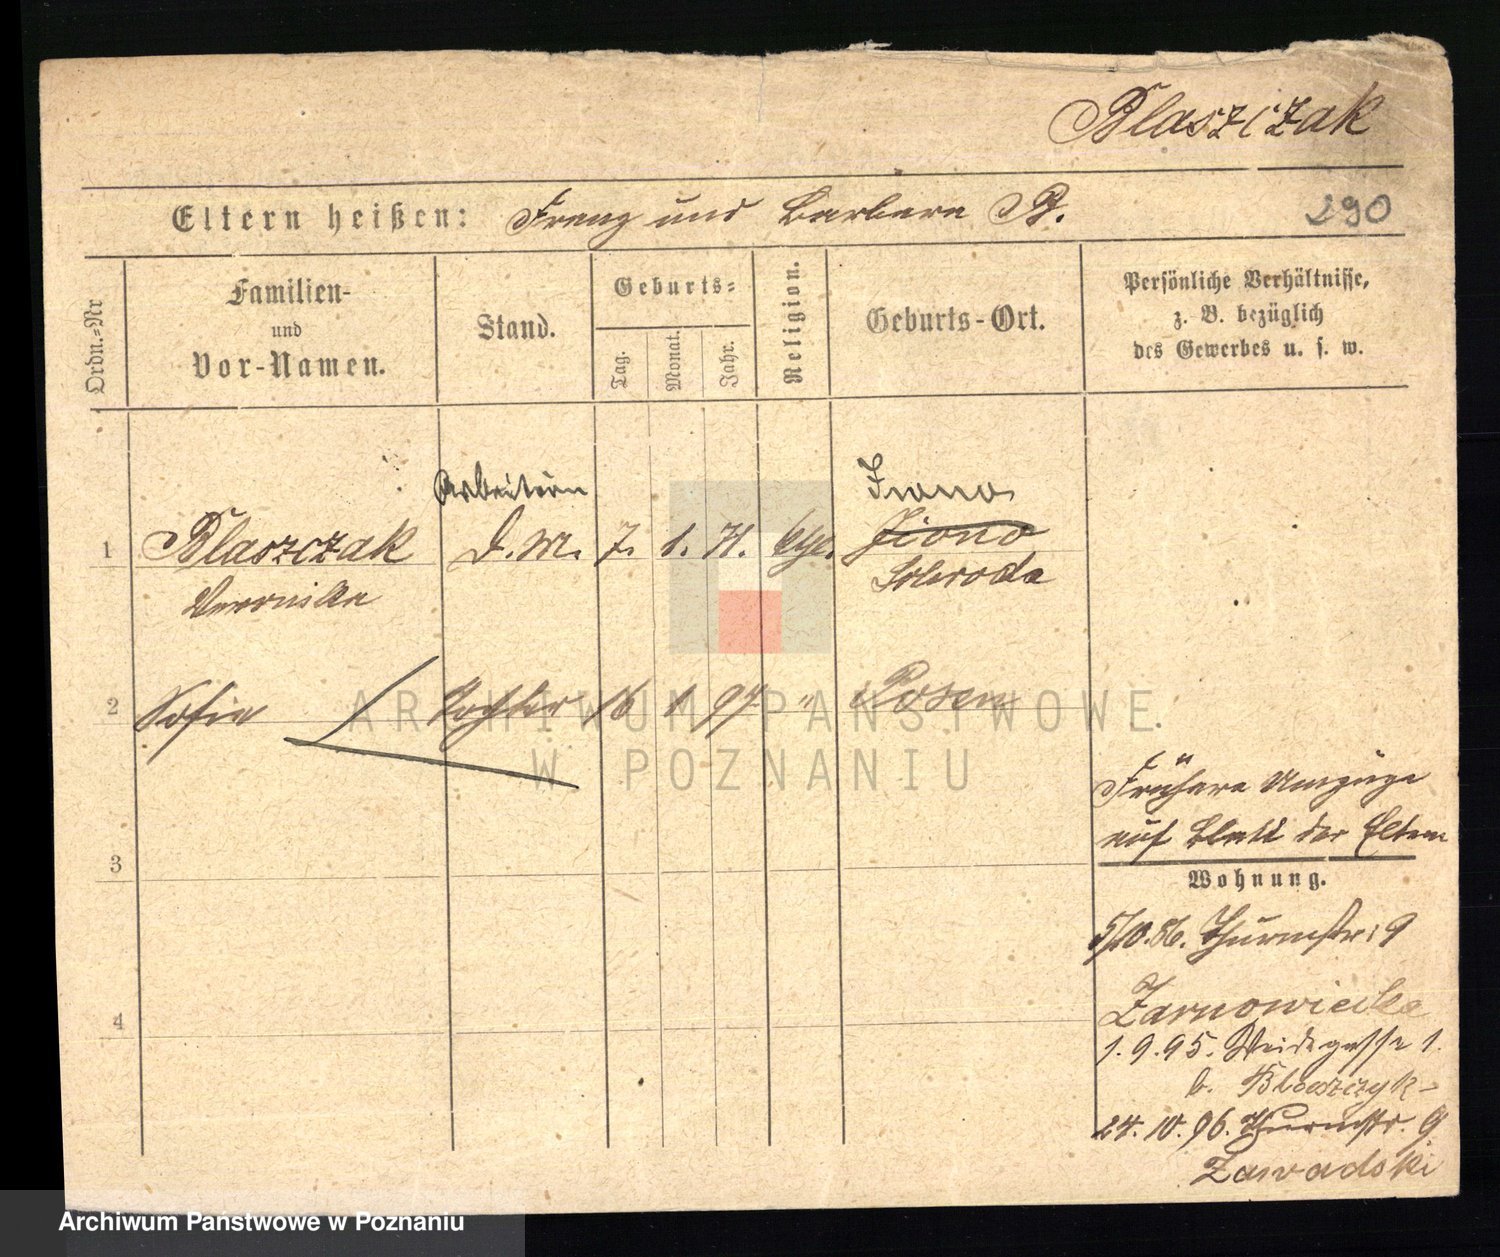 Blaszczak
Eltern heißen: Franz und Barbara B.
290
Ordn.-Nr
Familien-
und
Vor-Namen.
Stand.
Geburts-
Tag.
Monat.
Jahr.
Religion.
Geburts-Ort.
Persönliche Verhältnisse,
z. B. bezüglich
des Gewerbes u. s. w.
Arbeiterin
1 Blaszczak D.M. 7. 1. 71.
Veronika Schroda
2 Sofie Tochter 16 1 97 " Posen
3
4
Frühere Umzüge
auf Blatt der Eltern
Wohnung.
5/10.86. Thurmstr: 9
Zarnowiecka
1.9.95. Weidegasse 1.
b. Blaszczyk-
24.10.96. Thurmstr. 9
Zawadski
ARCHIWUM PAŃSTWOWE
W POZNANIU
Archiwum Państwowe w Poznaniu